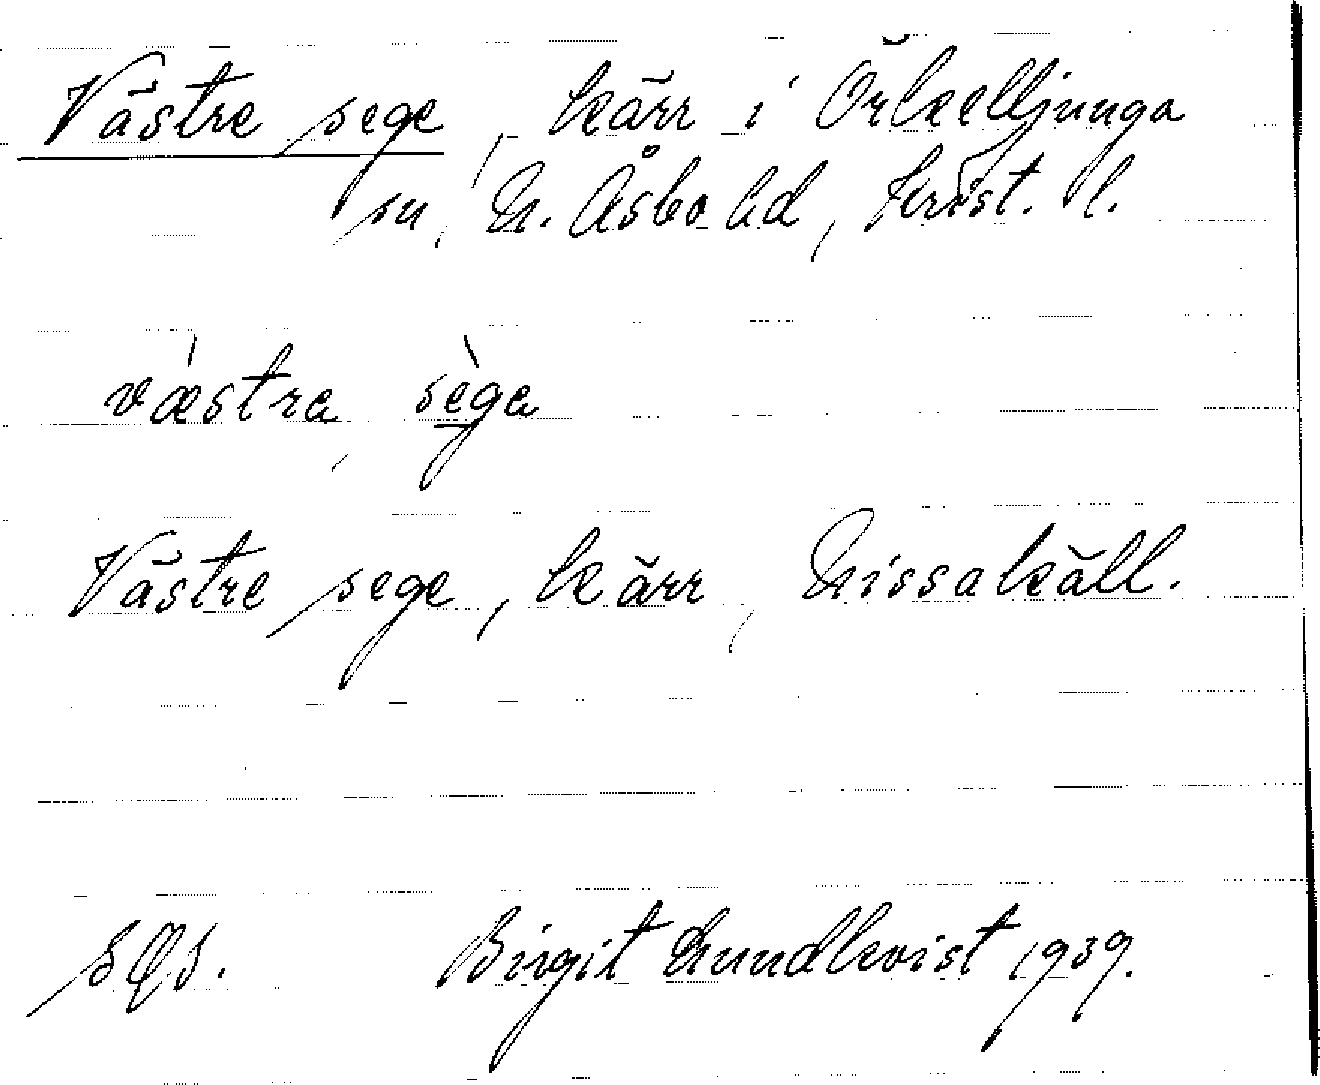 Västre sege, kärr i Örkelljunga
sn, N. Åsbo hd, Krist. l.
væstra sèga
Västre sege, kärr, Nissakäll.
SOS. Birgit Lundkvist 1939.